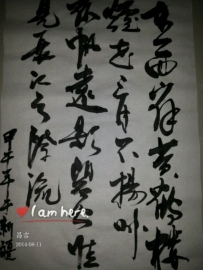 西辞黄鹤楼
煙花三月下揚州
孤帆遠影碧空惟
見長江天際流
甲午年新疆
I am here.
昌吉
2014-08-11